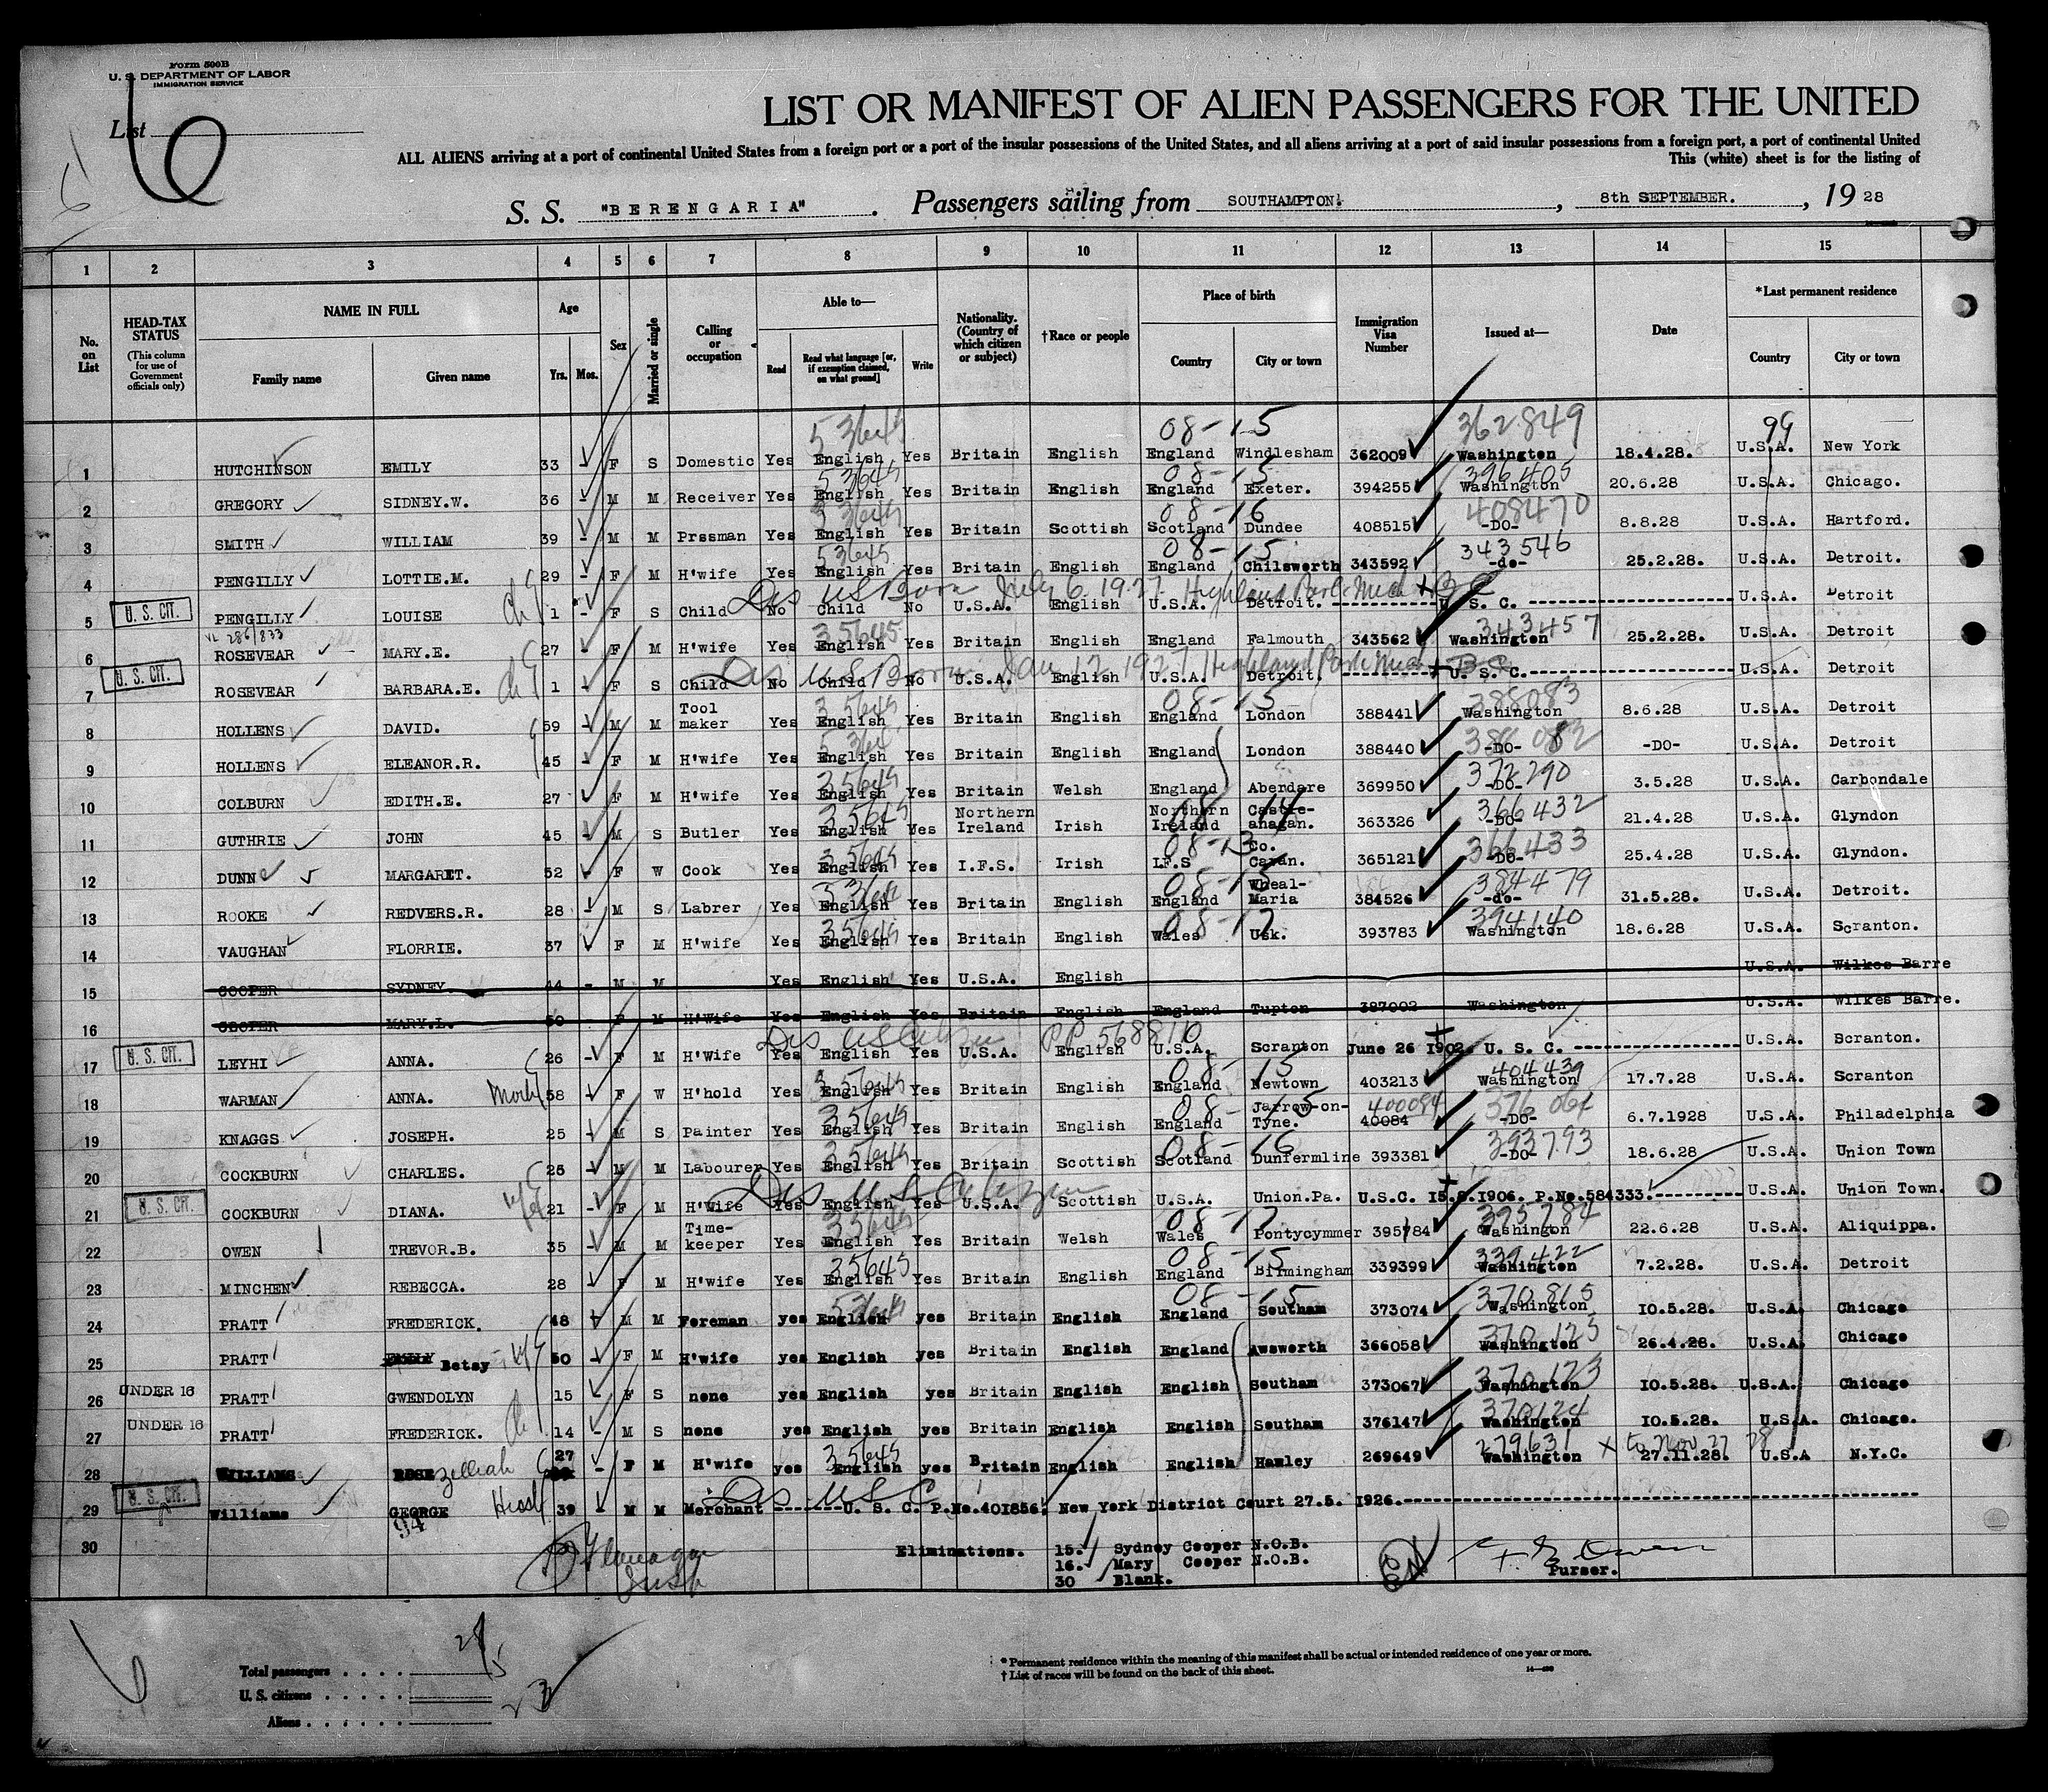 Form 500B
U. S. DEPARTMENT OF LABOR
IMMIGRATION SERVICE
List 6
LIST OR MANIFEST OF ALIEN PASSENGERS FOR THE UNITED
ALL ALIENS arriving at a port of continental United States from a foreign port or a port of the insular possessions of the United States, and all aliens arriving at a port of said insular possessions from a foreign port, a port of continental United
This (white) sheet is for the listing of
S. S. "BERENGARIA". Passengers sailing from SOUTHAMPTON. , 8th SEPTEMBER. , 19 28
1 2 3 4 5 6 7 8 9 10 11 12 13 14 15
No. on List HEAD-TAX STATUS (This column for use of Government officials only) NAME IN FULL Family name Given name Age Yrs. Mos. Sex Married or single Calling or occupation Able to— Read Read what language [or, if exemption claimed, on what ground] Write Nationality. (Country of which citizen or subject) †Race or people Place of birth Country City or town Immigration Visa Number Issued at— Date *Last permanent residence Country City or town
53645 08-15 362849 99
1 HUTCHINSON EMILY 33 - F S Domestic Yes English Yes Britain English England Windlesham 362009 Washington 18.4.28. U.S.A. New York
53645 08-15 396405
2 GREGORY SIDNEY.W. 36 - M M Receiver Yes English Yes Britain English England Exeter. 394255 Washington 20.6.28 U.S.A. Chicago.
53645 08-16 408470
3 SMITH WILLIAM 39 - M M Prssman Yes English Yes Britain Scottish Scotland Dundee 408515 -DO- 8.8.28 U.S.A. Hartford.
53645 08-15 343546
4 PENGILLY LOTTIE.M. 29 - F M H'wife Yes English Yes Britain English England Chilsworth 343592 -do- 25.2.28. U.S.A. Detroit.
Dis US Born July 6 1927 Highland Park Mich + BC
5 U. S. CIT. PENGILLY LOUISE ch 1 - F S Child No Child No U.S.A. English U.S.A. Detroit. ---------- U. S. C. ---------- U.S.A. Detroit
286/833 35645 343457
6 ROSEVEAR MARY.E. 27 - F M H'wife Yes English Yes Britain English England Falmouth 343562 Washington 25.2.28. U.S.A. Detroit
Dis US Born Jan 17 1927 Highland Park Mich + BC
7 U. S. CIT. ROSEVEAR BARBARA.E. ch 1 - F S Child No Child No U.S.A. English U.S.A. Detroit. ---------- U. S. C.---------- U.S.A. Detroit
35645 08-15 388083
8 HOLLENS DAVID. 59 - M M Tool maker Yes English Yes Britain English England London 388441 Washington 8.6.28 U.S.A. Detroit
388082
9 HOLLENS ELEANOR.R. 45 - F M H'wife Yes English Yes Britain English England London 388440 -DO- -DO- U.S.A. Detroit
35645 372290
10 COLBURN EDITH.E. 27 F M H'wife Yes English Yes Britain Welsh England Aberdare 369950 -DO- 3.5.28 U.S.A. Carbondale
35645 18 14 366432
11 GUTHRIE JOHN 45 - M S Butler Yes English Yes Northern Ireland Irish Northern Ireland Castle-anagan. 363326 -DO- 21.4.28 U.S.A. Glyndon
35645 08-13 366433
12 DUNN MARGARET. 52 F W Cook Yes English Yes I.F.S. Irish I.F.S Co. Cavan. 365121 -DO- 25.4.28 U.S.A. Glyndon.
08-15 384479
13 ROOKE REDVERS.R. 28 - M S Labrer Yes English Yes Britain English England Wheal-Maria 384526 -do- 31.5.28. U.S.A. Detroit.
35645 08-17 394140
14 VAUGHAN FLORRIE. 37 F M H'wife Yes English Yes Britain English Wales Usk. 393783 Washington 18.6.28 U.S.A. Scranton.
15 COOPER SYDNEY. 44 - M M Yes English Yes U.S.A. English U.S.A. Wilkes Barre
16 COOPER MARY.L. 50 F M H'Wife Yes English Yes Britain English England Tupton 387002 Washington U.S.A. Wilkes Barre.
Dis US Citizen PP 568810
17 U. S. CIT. LEYHI ANNA. 26 - F M H'Wife Yes English Yes U.S.A. English U.S.A. Scranton June 26 1902. U. S. C. ---------- U.S.A. Scranton.
35645 08-15 404439
18 WARMAN ANNA. Moth 58 F W H'hold Yes English Yes Britain English England Newtown 403213 Washington 17.7.28 U.S.A. Scranton
35645 08-15 400084
19 KNAGGS JOSEPH. 25 - M S Painter Yes English Yes Britain English England Jarrow-on-Tyne. 40084 -DO- 6.7.1928 U.S.A. Philadelphia
35645 08-16 393793
20 COCKBURN CHARLES. 25 - M M Labourer Yes English Yes Britain Scottish Scotland Dunfermline 393381 -DO- 18.6.28 U.S.A. Union Town
Dis U S Citizen
21 U. S. CIT. COCKBURN DIANA. wf 21 - F M H'Wife Yes English Yes U.S.A. Scottish U.S.A. Union.Pa. U.S.C. 15.8.1906. P.No.584333.---------- U.S.A. Union Town.
35645 08-17 395784
22 OWEN TREVOR.B. 35 - M M Time-keeper Yes English Yes Britain Welsh Wales Pontycymmer 395784 Washington 22.6.28 U.S.A. Aliquippa.
35645 08-15 339422
23 MINCHEN REBECCA. 28 F M H'wife Yes English Yes Britain English England Birmingham 339399 Washington 7.2.28. U.S.A. Detroit
53645 08-15 370815
24 PRATT FREDERICK. 48 M M Foreman yes English yes Britain English England Southam 373074 Washington 10.5.28. U.S.A. Chicago
370125
25 PRATT Betsy wf 50 - F M H'wife yes English yes Britain English England Awsworth 366058 Washington 26.4.28. U.S.A. Chicago
370123
26 UNDER 16 PRATT GWENDOLYN 15 F S none yes English yes Britain English English Southam 373067 Washington 10.5.28. U.S.A. Chicago
370124
27 UNDER 16 PRATT FREDERICK. ch 14 - M S none yes English yes Britain English English Southam 376147 Washington 10.5.28. U.S.A. Chicago.
27 35645 279631 x to Nov 27 28
28 WILLIAMS ROSE Zilliah - F M H'wife yes English yes Britain English English Hanley 269649 Washington 27.11.28. U.S.A N.Y.C.
Dis USC
29 U. S. CIT. Williams GEORGE Husb 39 M M Merchant -------U. S. C. P.No.401856. New York District Court 27.5. 1926.----------
94
30
Flanagan
Insp
Eliminations. 15. Sydney Cooper N.O.B.
16. Mary Cooper N.O.B.
30 Blank.
Purser.
Total passengers . . . .
U. S. citizens . . . . .
Aliens . . . . . .
* Permanent residence within the meaning of this manifest shall be actual or intended residence of one year or more.
† List of races will be found on the back of this sheet.
6